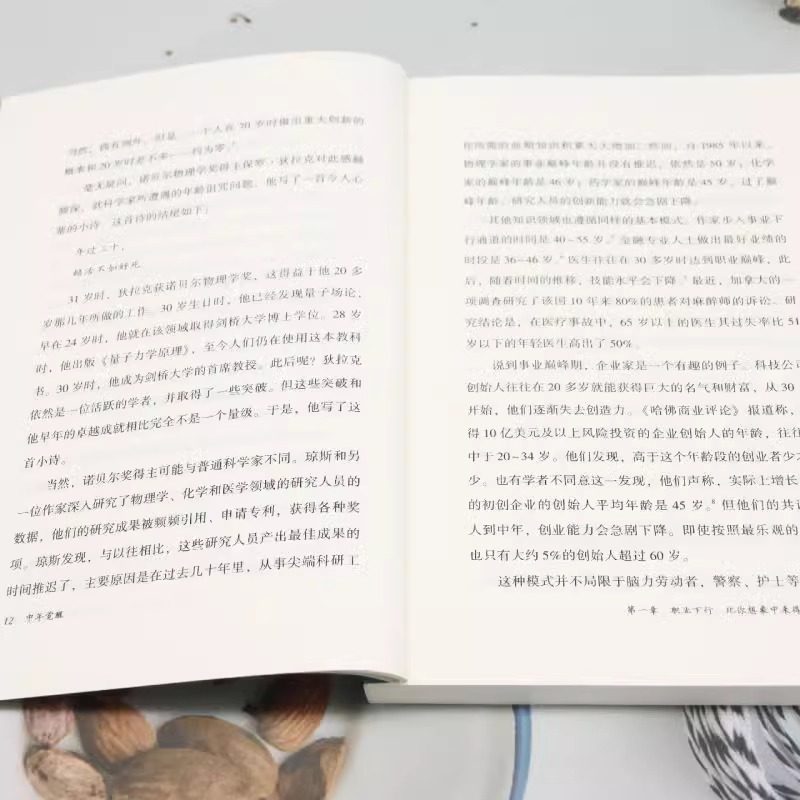 当然，偶有例外。但是，一个人在 70 岁时做出重大创新的
概率和 20 岁时差不多——约为零。
毫无疑问，诺贝尔物理学奖得主保罗·狄拉克对此感触
颇深。就科学家所遭遇的年龄诅咒问题，他写了一首令人心
塞的小诗。这首诗的结尾如下：
年过三十，
赖活不如好死。
31 岁时，狄拉克获诺贝尔物理学奖，这得益于他 20 多
岁那几年所做的工作。30 岁生日时，他已经发现量子场论，
早在 24 岁时，他就在该领域取得剑桥大学博士学位。28 岁
时，他出版《量子力学原理》，至今人们仍在使用这本教科
书。30 岁时，他成为剑桥大学的首席教授。此后呢？狄拉克
依然是一位活跃的学者，并取得了一些突破。但这些突破和
他早年的卓越成就相比完全不是一个量级。于是，他写了这
首小诗。
当然，诺贝尔奖得主可能与普通科学家不同。琼斯和另
一位作家深入研究了物理学、化学和医学领域的研究人员的
数据，他们的研究成果被频频引用、申请专利，获得各种奖
项。琼斯发现，与以往相比，这些研究人员产出最佳成果的
时间推迟了，主要原因是在过去几十年里，从事尖端科研工
12 中年觉醒
作所需的前期知识积累大大增加。然而，自 1985 年以来，
物理学家的事业巅峰年龄并没有推迟，依然是 50 岁；化学
家的巅峰年龄是 46 岁；药学家的巅峰年龄是 45 岁。过了巅
峰年龄，研究人员的创新能力就会急剧下降。
其他知识领域也遵循同样的基本模式。作家步入事业下
行通道的时间是 40~55 岁。金融专业人士做出最好业绩的
时段是 36~46 岁。医生往往在 30 多岁时达到职业巅峰，此
后，随着时间的推移，技能水平会下降。最近，加拿大的一
项调查研究了该国 10 年来 80%的患者对麻醉师的诉讼。研
究结论是，在医疗事故中，65 岁以上的医生其过失率比 51
岁以下的年轻医生高出了 50%。
说到事业巅峰期，企业家是一个有趣的例子。科技公司
创始人往往在 20 多岁就能获得巨大的名气和财富，从 30
开始，他们逐渐失去创造力。《哈佛商业评论》报道称，
得 10 亿美元及以上风险投资的企业创始人的年龄，往往
中于 20~34 岁。他们发现，高于这个年龄段的创业者少之
少。也有学者不同意这一发现，他们声称，实际上增长
的初创企业的创始人平均年龄是 45 岁。⁸ 但他们的共识
人到中年，创业能力会急剧下降。即使按照最乐观的
也只有大约 5%的创始人超过 60 岁。
这种模式并不局限于脑力劳动者，警察、护士等
第一章 职业下行 比你想象中来得